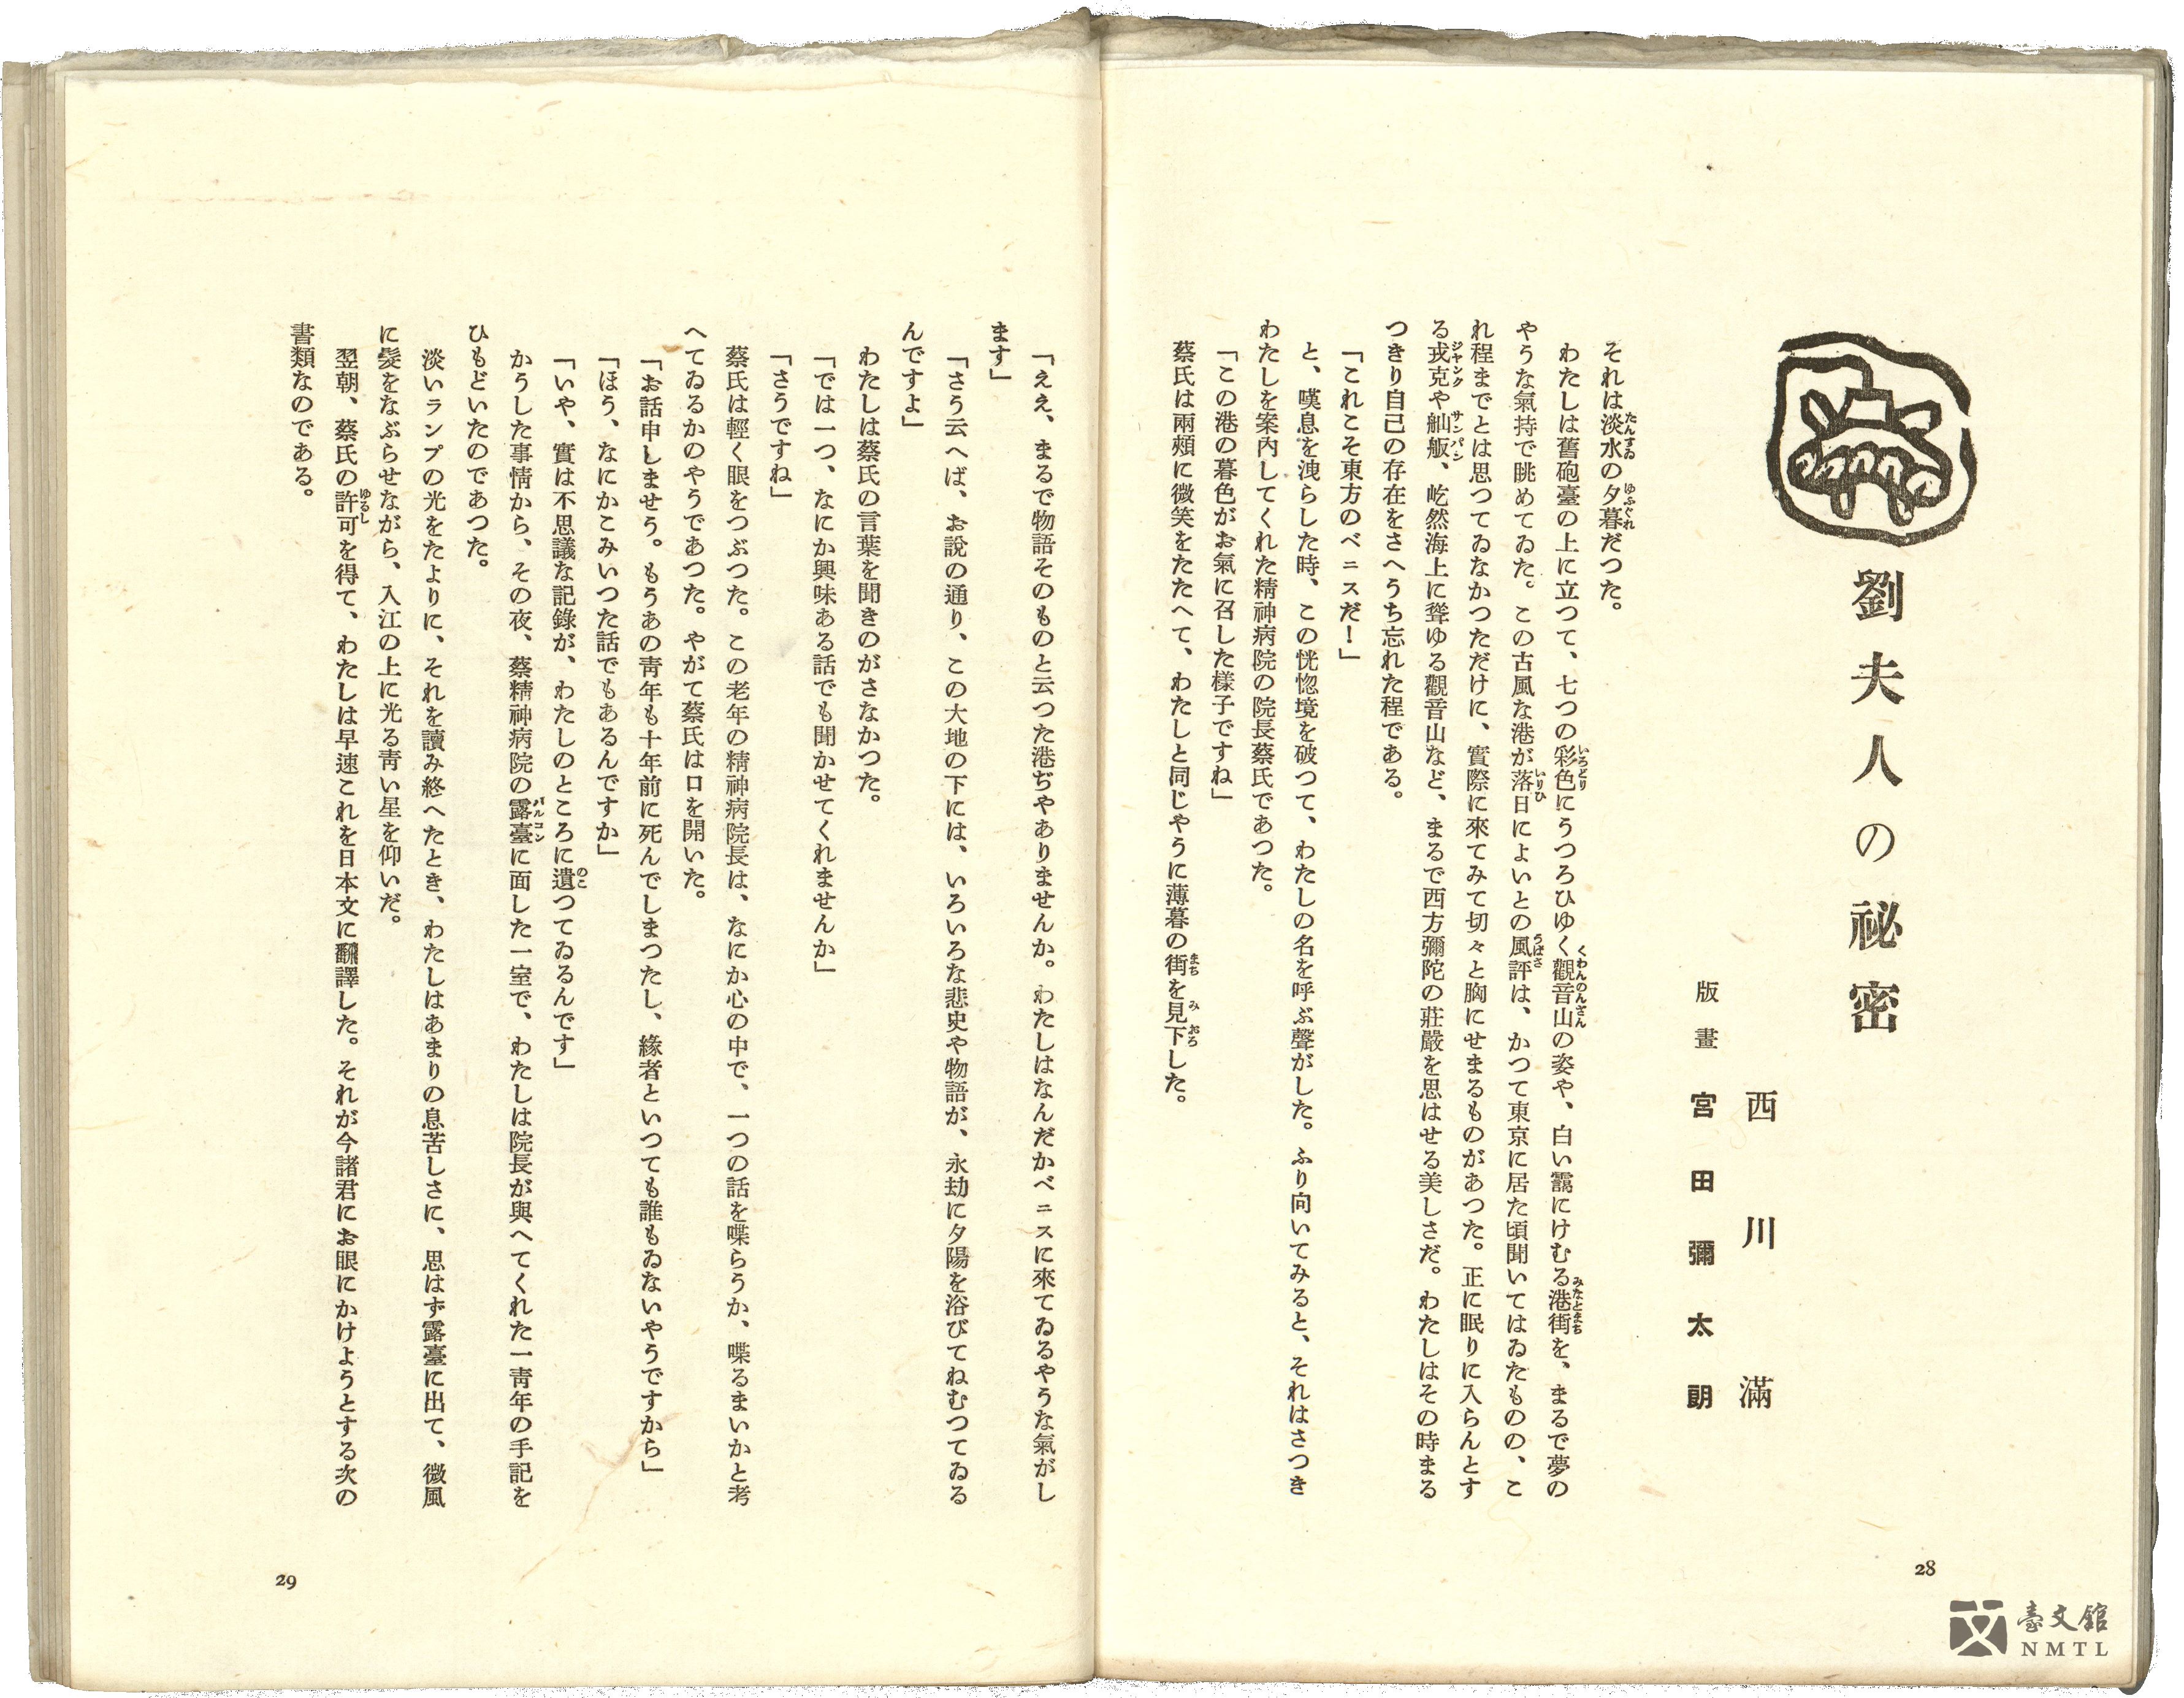 劉夫人の祕密
西川滿
版畫 宮田彌太朗
それは淡水の夕暮だつた。
わたしは舊砲臺の上に立つて、七つの彩色にうつろひゆく觀音山の姿や、白い靄にけむる港街を、まるで夢の
やうな氣持で眺めてゐた。この古風な港が落日によいとの風評は、かつて東京に居た頃聞いてはゐたものの、こ
れ程までとは思つてゐなかつただけに、實際に來てみて切々と胸にせまるものがあつた。正に眠りに入らんとす
る戎克や舢舨、屹然海上に聳ゆる觀音山など、まるで西方彌陀の莊嚴を思はせる美しさだ。わたしはその時まる
つきり自己の存在をさへうち忘れた程である。
「これこそ東方のベニスだ！」
と、嘆息を洩らした時、この恍惚境を破つて、わたしの名を呼ぶ聲がした。ふり向いてみると、それはさつき
わたしを案內してくれた精神病院の院長蔡氏であつた。
「この港の暮色がお氣に召した樣子ですね」
蔡氏は兩頰に微笑をたたへて、わたしと同じやうに薄暮の街を見下した。
28
「ええ、まるで物語そのものと云つた港ぢやありませんか。わたしはなんだかベニスに來てゐるやうな氣がし
ます」
「さう云へば、お說の通り、この大地の下には、いろいろな悲史や物語が、永劫に夕陽を浴びてねむつてゐる
んですよ」
わたしは蔡氏の言葉を聞きのがさなかつた。
「では一つ、なにか興味ある話でも聞かせてくれませんか」
「さうですね」
蔡氏は輕く眼をつぶつた。この老年の精神病院長は、なにか心の中で、一つの話を喋らうか、喋るまいかと考
へてゐるかのやうであつた。やがて蔡氏は口を開いた。
「お話申しませう。もうあの靑年も十年前に死んでしまつたし、緣者といつても誰もゐないやうですから」
「ほう、なにかこみいつた話でもあるんですか」
「いや、實は不思議な記錄が、わたしのところに遺つてゐるんです」
かうした事情から、その夜、蔡精神病院の露臺に面した一室で、わたしは院長が與へてくれた一靑年の手記を
ひもどいたのであつた。
淡いランプの光をたよりに、それを讀み終へたとき、わたしはあまりの息苦しさに、思はず露臺に出て、微風
に髮をなぶらせながら、入江の上に光る靑い星を仰いだ。
翌朝、蔡氏の許可を得て、わたしは早速これを日本文に飜譯した。それが今諸君にお眼にかけようとする次の
書類なのである。
29
臺文館
NMTL